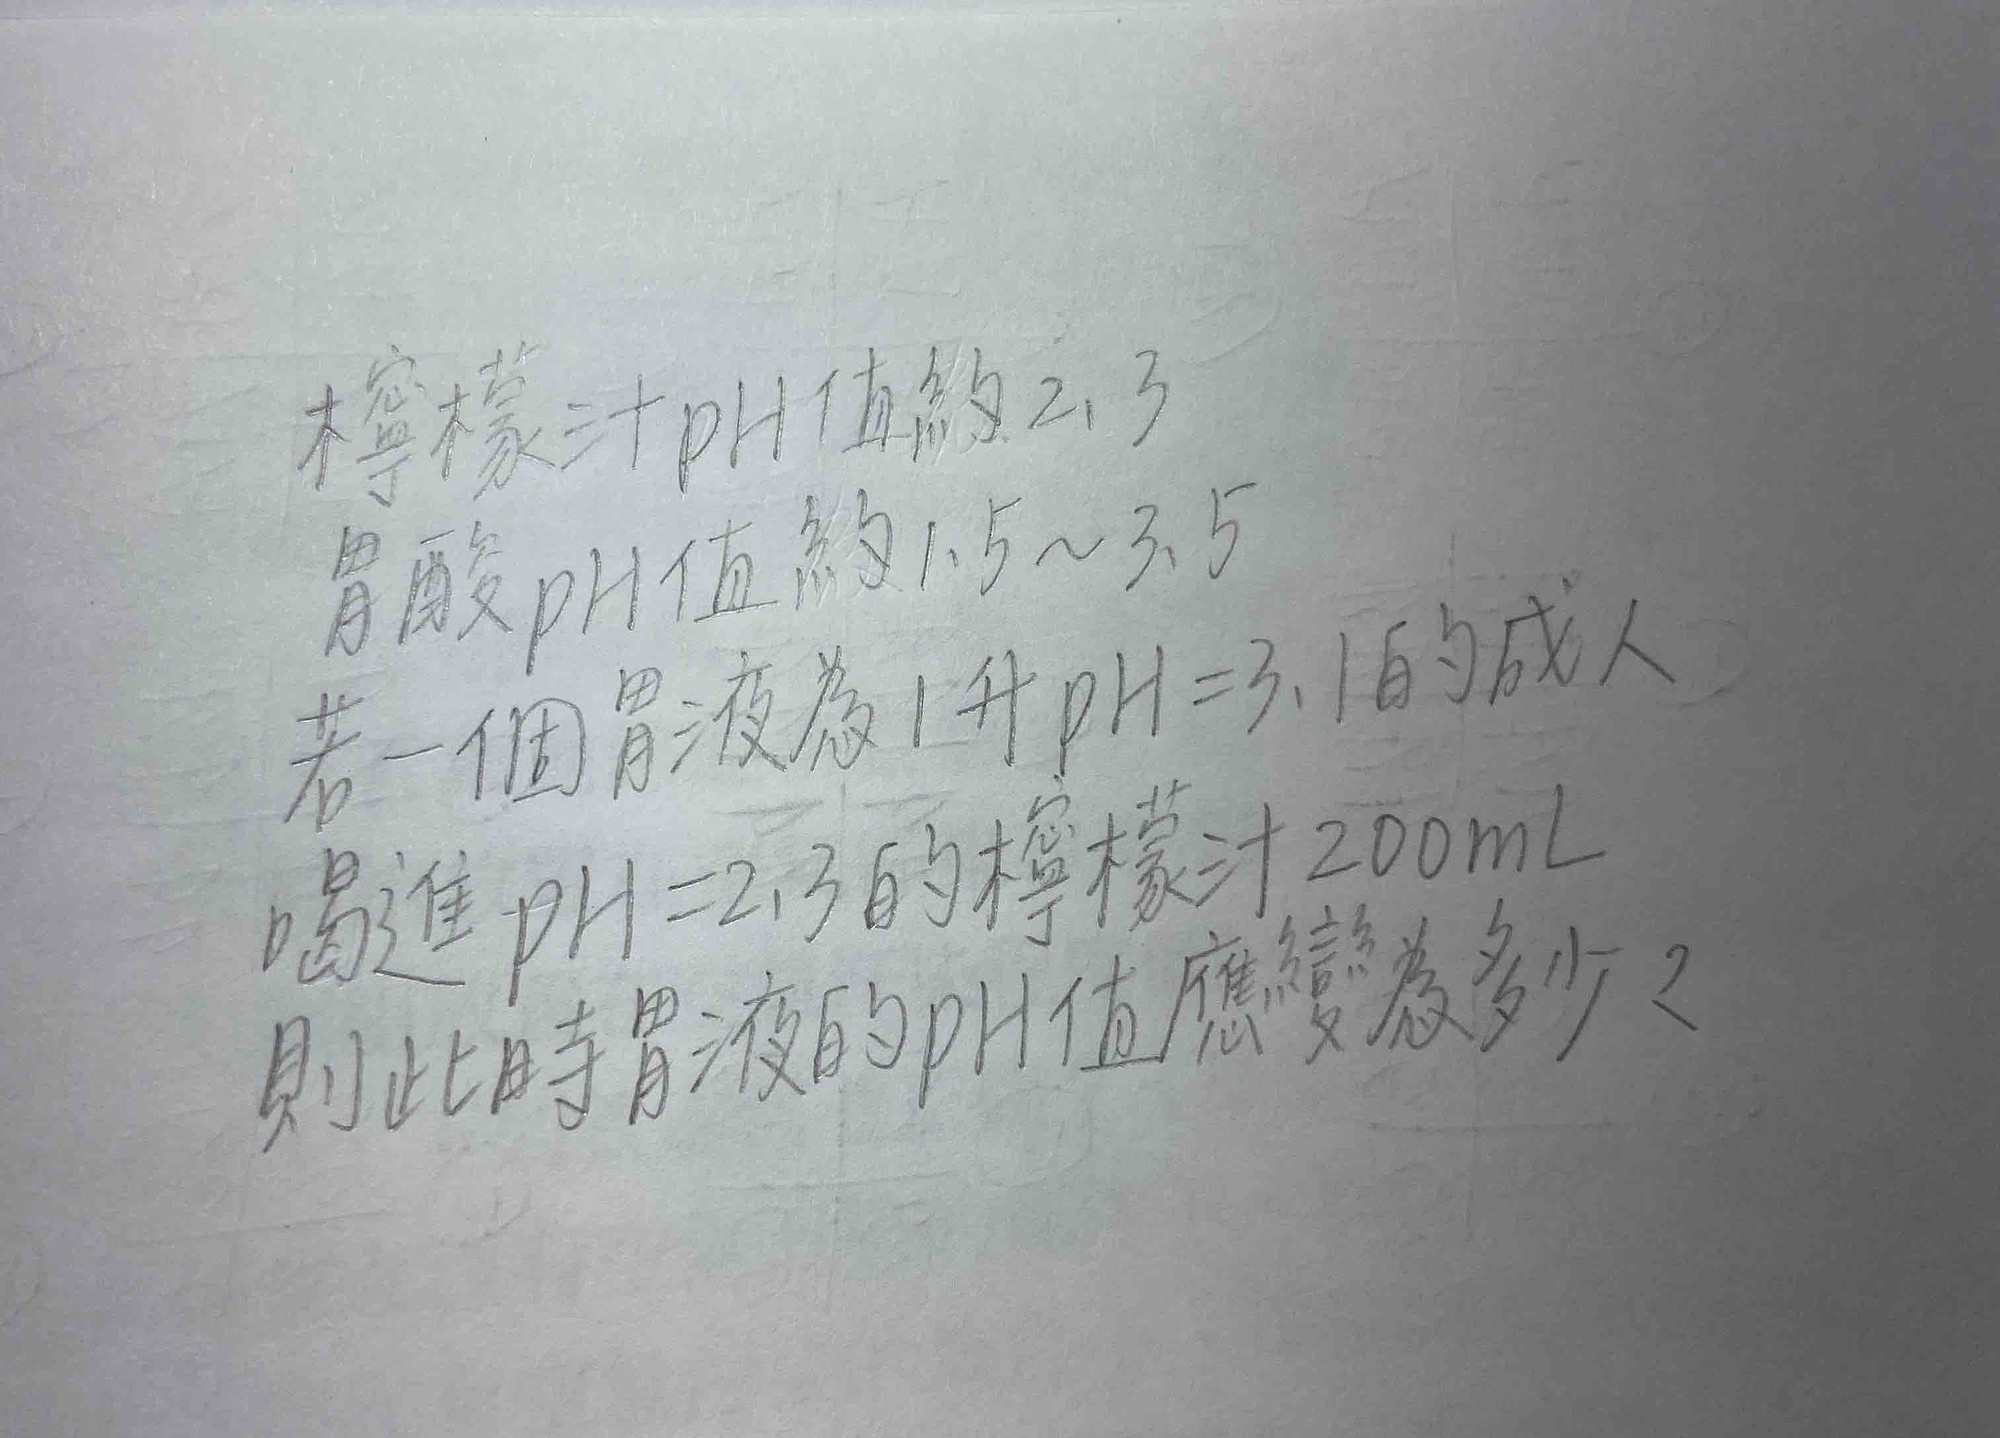 檸檬汁pH值約2.3
胃酸pH值約1.5~3.5
若一個胃液為1升pH=3.1的成人
喝進pH=2.3的檸檬汁200mL
則此時胃液的pH值應變為多少?